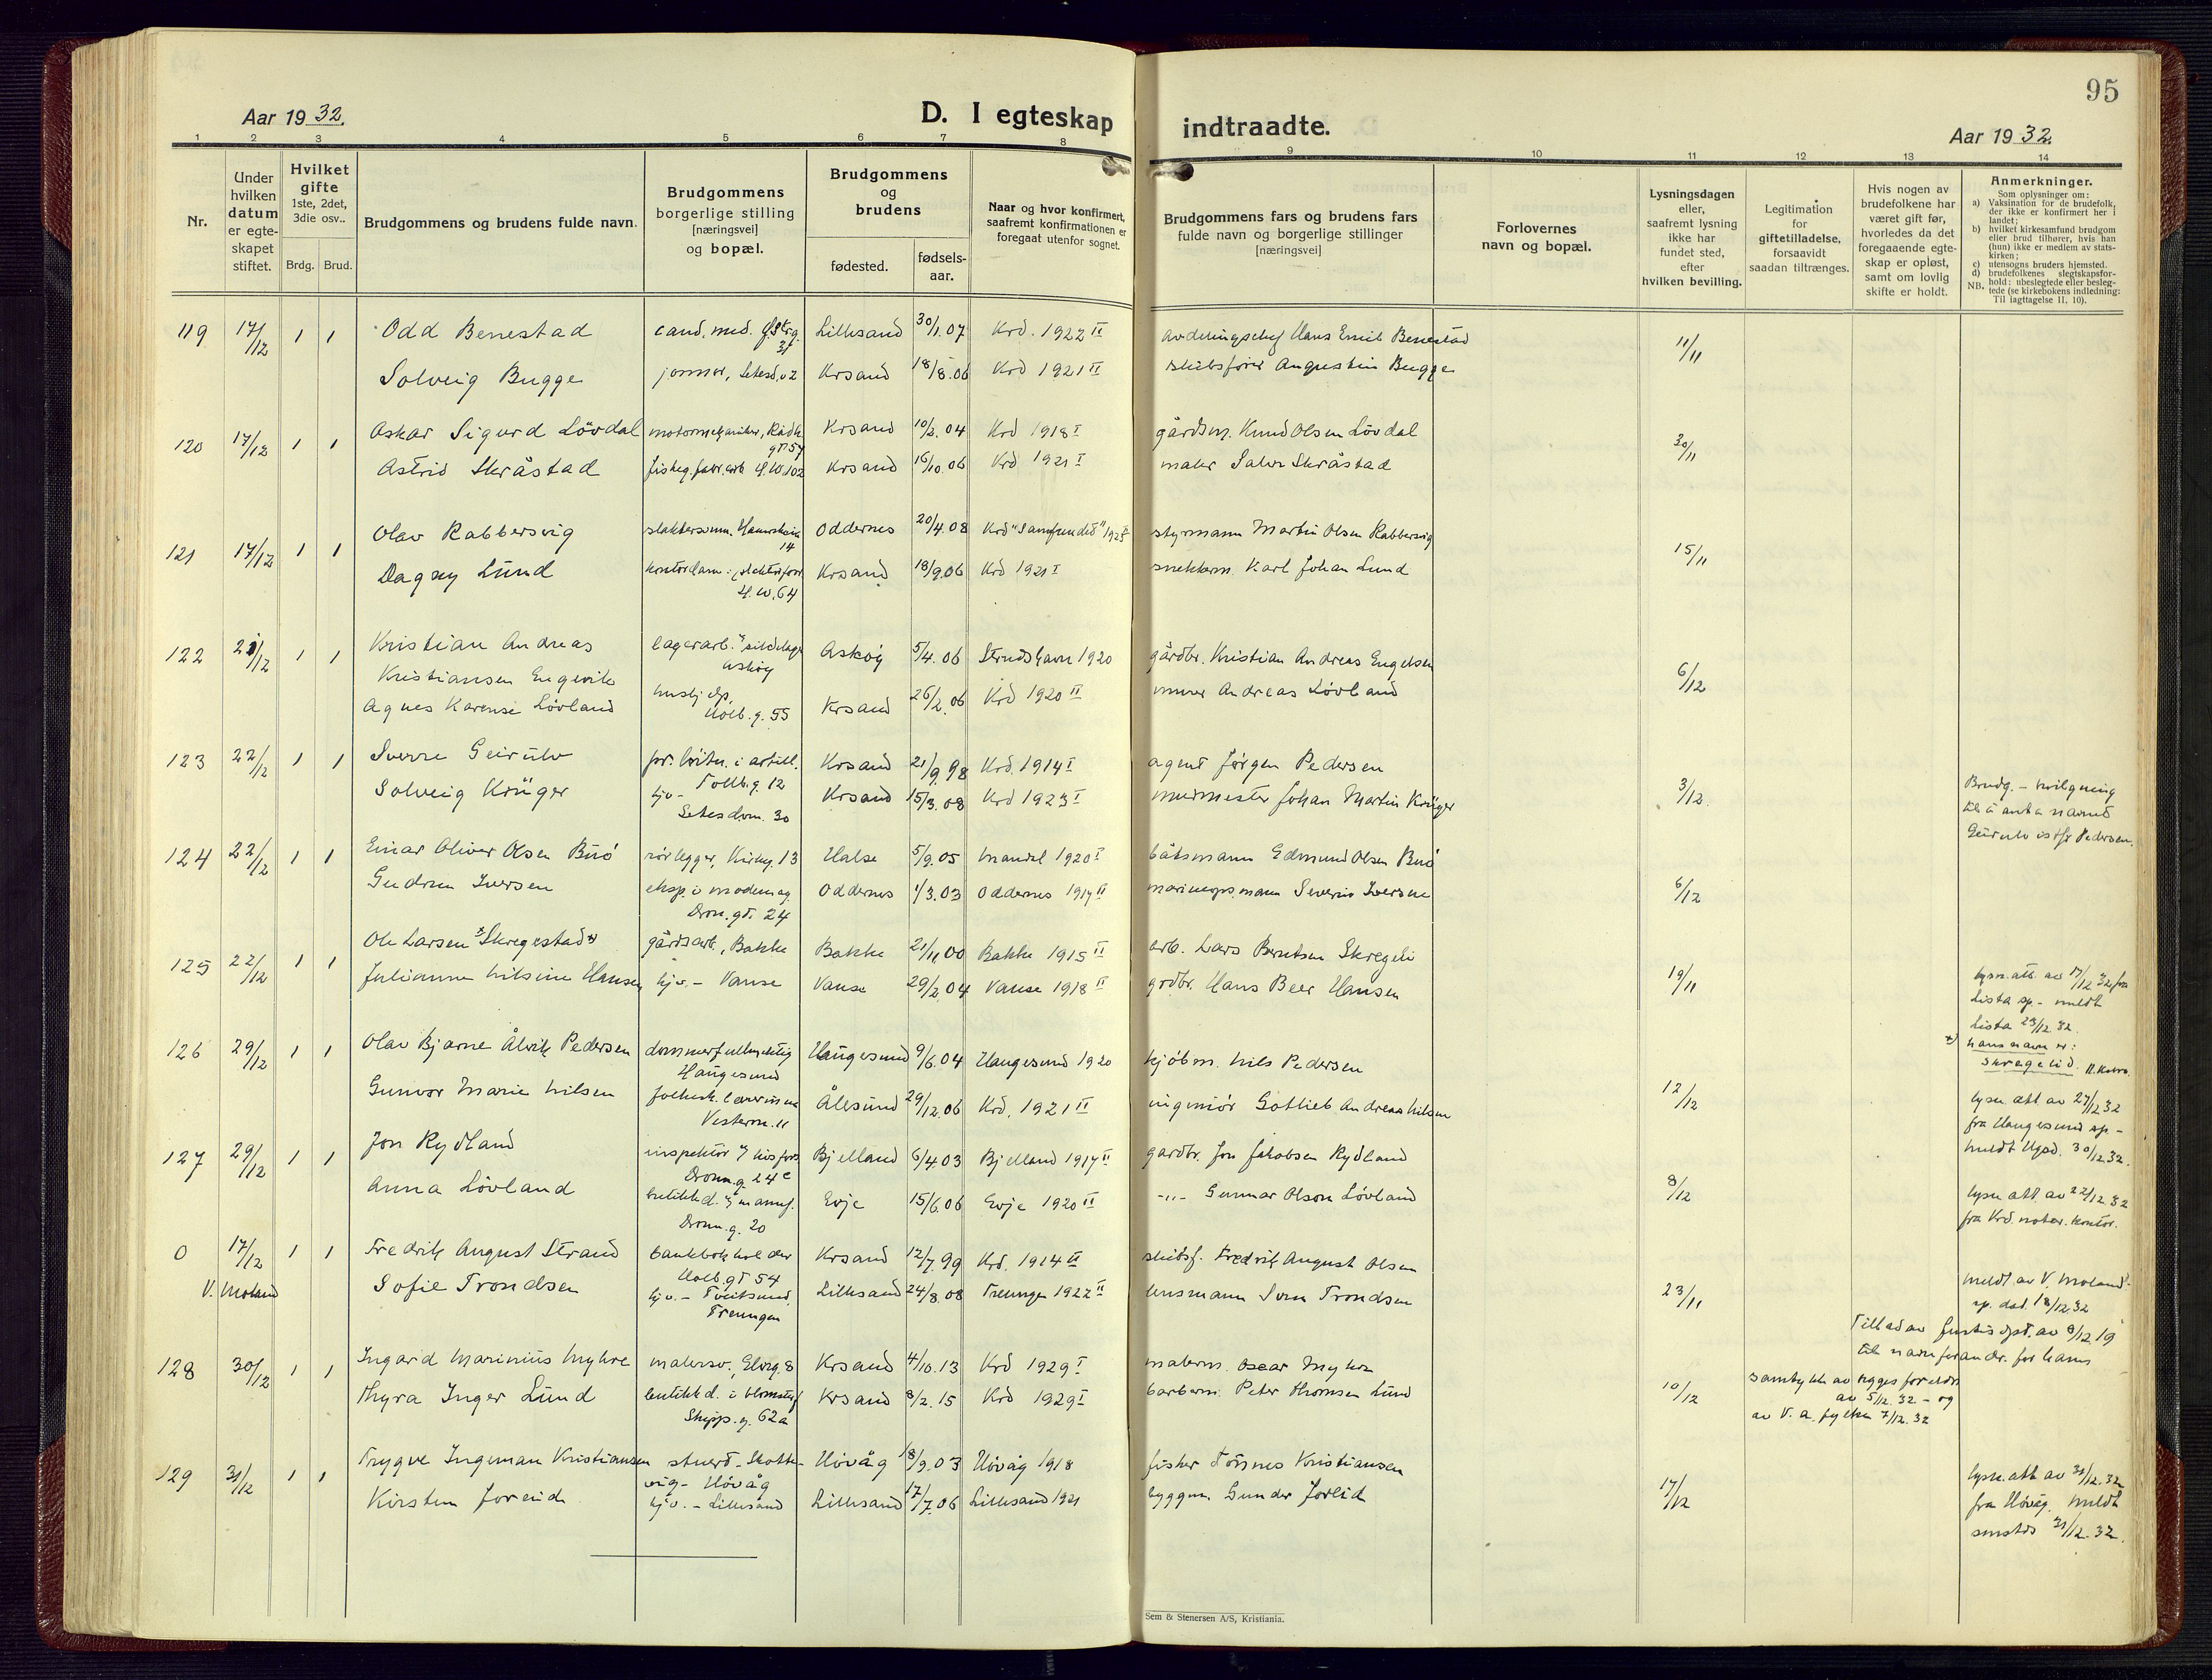 95
Aar 1932.
D. I egteskap indtraadte.
Aar 1932.
1 2 3 4 5 6 7 8 9 10 11 12 13 14
Nr.
Under hvilken datum er egte-skapet stiftet.
Hvilket gifte 1ste, 2det, 3die osv..
Brdg. Brud.
Brudgommens og brudens fulde navn.
Brudgommens borgerlige stilling [næringsvei] og bopæl.
Brudgommens og brudens
fødested.
fødsels-aar.
Naar og hvor konfirmert, saafremt konfirmationen er foregaat utenfor sognet.
Brudgommens fars og brudens fars fulde navn og borgerlige stillinger [næringsvei]
Forlovernes navn og bopæl.
Lysningsdagen eller, saafremt lysning ikke har fundet sted, efter hvilken bevilling.
Legitimation for giftetilladelse, forsaavidt saadan tiltrænges.
Hvis nogen av brudefolkene har været gift før, hvorledes da det foregaaende egte-skap er opløst, samt om lovlig skifte er holdt.
Anmerkninger.
Som oplysninger om:
a) Vaksination for de brudefolk, der ikke er konfirmert her i landet;
b) hvilket kirkesamfund brudgom eller brud tilhører, hvis han (hun) ikke er medlem av stats-kirken;
c) utensogns bruders hjemsted.
d) brudefolkenes slegtskapsfor-hold: ubeslegtede eller besleg-tede (se kirkebokens indledning: Til iagttagelse II. 10).
NB.
119 17/12 1 1 Odd Benestad cand. med. Lillesand 30/1.07 Krd. 1922 II avdelingschef Hans Emil Benestad 11/11
Solveig Bugge Krsand 18/8.06 Krd 1921 II skibsfører Augustin Bugge
120 17/12 1 1 Oskar Sigurd Lövdal motormekaniker, Rådh.gt 57 Krsand 10/2.04 Krd 1918 I gårdsm. Knud Olsen Lövdal 30/11
Astrid Skråstad H.W.102 Krsand 16/10.06 Krd 1921 I maler Skråstad
121 17/12 1 1 Olav Rabbersvig 14 Oddernes 20/4.08 Krd "Samfundet" styrmann Martin Olsen Rabbersvig 15/11
Dagny Lund H.W.64 Krsand 18/9.06 Krd 1921 I snekkerm. Karl Johan Lund
122 21/12 1 1 Kristian Andreas Kristiansen Engevik lagerarb. Askøy Askøy 5/4.06 1920 gårdbr. Kristian Andreas Engelsen 6/12
Agnes Karense Lövland Holb.g. 55 Krsand 26/2.06 Krd 1920 II murer Andreas Lövland
123 22/12 1 1 Sverre Geirulv i artill. Tollb.g. 12 Krsand 21/9.98 Krd. 1914 I agent Jörgen Pedersen 3/12
Solveig Krüger hjv- Setesdv. 30 Krsand 15/3.08 Krd 1923 I murmester Johan Martin Krüger
Brudg. - til å anta navnet Geirulv istf Pedersen.
124 22/12 1 1 Einar Oliver Olsen Buö rörlegger, Kirkeg. 13 Halse 5/9.05 Mandal 1920 I båtsmann Edmund Olsen Buö 6/12
Gudrun Iversen eksp. i Dron. gt. 24 Oddernes 1/3.03 Oddernes 1917 II Severin Iversen
125 22/12 1 1 Ole Larsen Skregestad gårdsarb., Bakke Bakke 21/11.00 Bakke 1915 II arb. Lars Berntsen Skregeli 19/11
Julianne Nilsine Hansen hjv. - Vanse Vanse 29/2.04 Vanse 1918 II grdbr. Hans Beer Hansen
lysn. att. av 17/12 32 fra Lista sp. - meldt Lista 23/12 32.
hans navn er: Skregelid.
126 29/12 1 1 Olav Bjarne Ålvik Pedersen dommerfullmektig Haugesund Haugesund 9/6.04 Haugesund 1920 kjöbm. Nils Pedersen 12/12
Gunvor Marie Nilsen folkesk. lærerinne Vesterv. 11 Ålesund 29/12.06 Krd. 1921 II ingeniör Gotlieb Andreas Nilsen
lysn. att av 27/12 32 fra Haugesund sp. - meldt Hgsd. 30/12 32.
127 29/12 1 1 Jon Rydland inspektör Dronn.g. 24 c Bjelland 6/4 03 Bjelland 1917 II gardbr. Jon Jakobsen Rydland 8/12
Anna Lövland butikkd. Dronn.g. 20 Evje 15/6.06 Evje 1920 II -"- Gunnar Olson Lövland
lysn. att. av 22/12 32 fra Krd. notar. kontor.
0 17/12 1 1 Fredrik August Strand bankbokholder Holb.gt 54 Krsand 12/7.99 Krd. 1914 II skibsf. Fredrik August Olsen 23/11
V. Moland Sofie Trondsen hjv. - Tveitsund, Treungen Lillesand 24/8.08 Treungen 1922 II lensmann Trondsen
meldt av V. Moland sp. dat. 18/12 32
128 30/12 1 1 Ingard Marinius Myhre malersv., Elveg. 8 Krsand 4/10.13 Krd 1929 I malerm. Oscar Myhre 10/12
Thyra Inger Lund butikkd. i Skipp.g. 62a Krsand 8/2.15 Krd 1929 I barberm. Peter Thomsen Lund
samtykke av begges foreldre av 5/12.32 - og av V. A. fylke 7/12.32
129 31/12 1 1 Trygve Ingeman Kristiansen stuert - Skottevig - Hövåg Hövåg 18/9.03 Hövåg 1918 fisker Tönnes Kristiansen 17/12
Kirsten Joreid hjv. - Lillesand Lillesand 17/7.06 Lillesand 1921 byggm. Gunder Joreid
lysn. att av 31/12.32 fra Hövåg. Meldt 31/12.32.
Sem & Stenersen A/S, Kristiania.